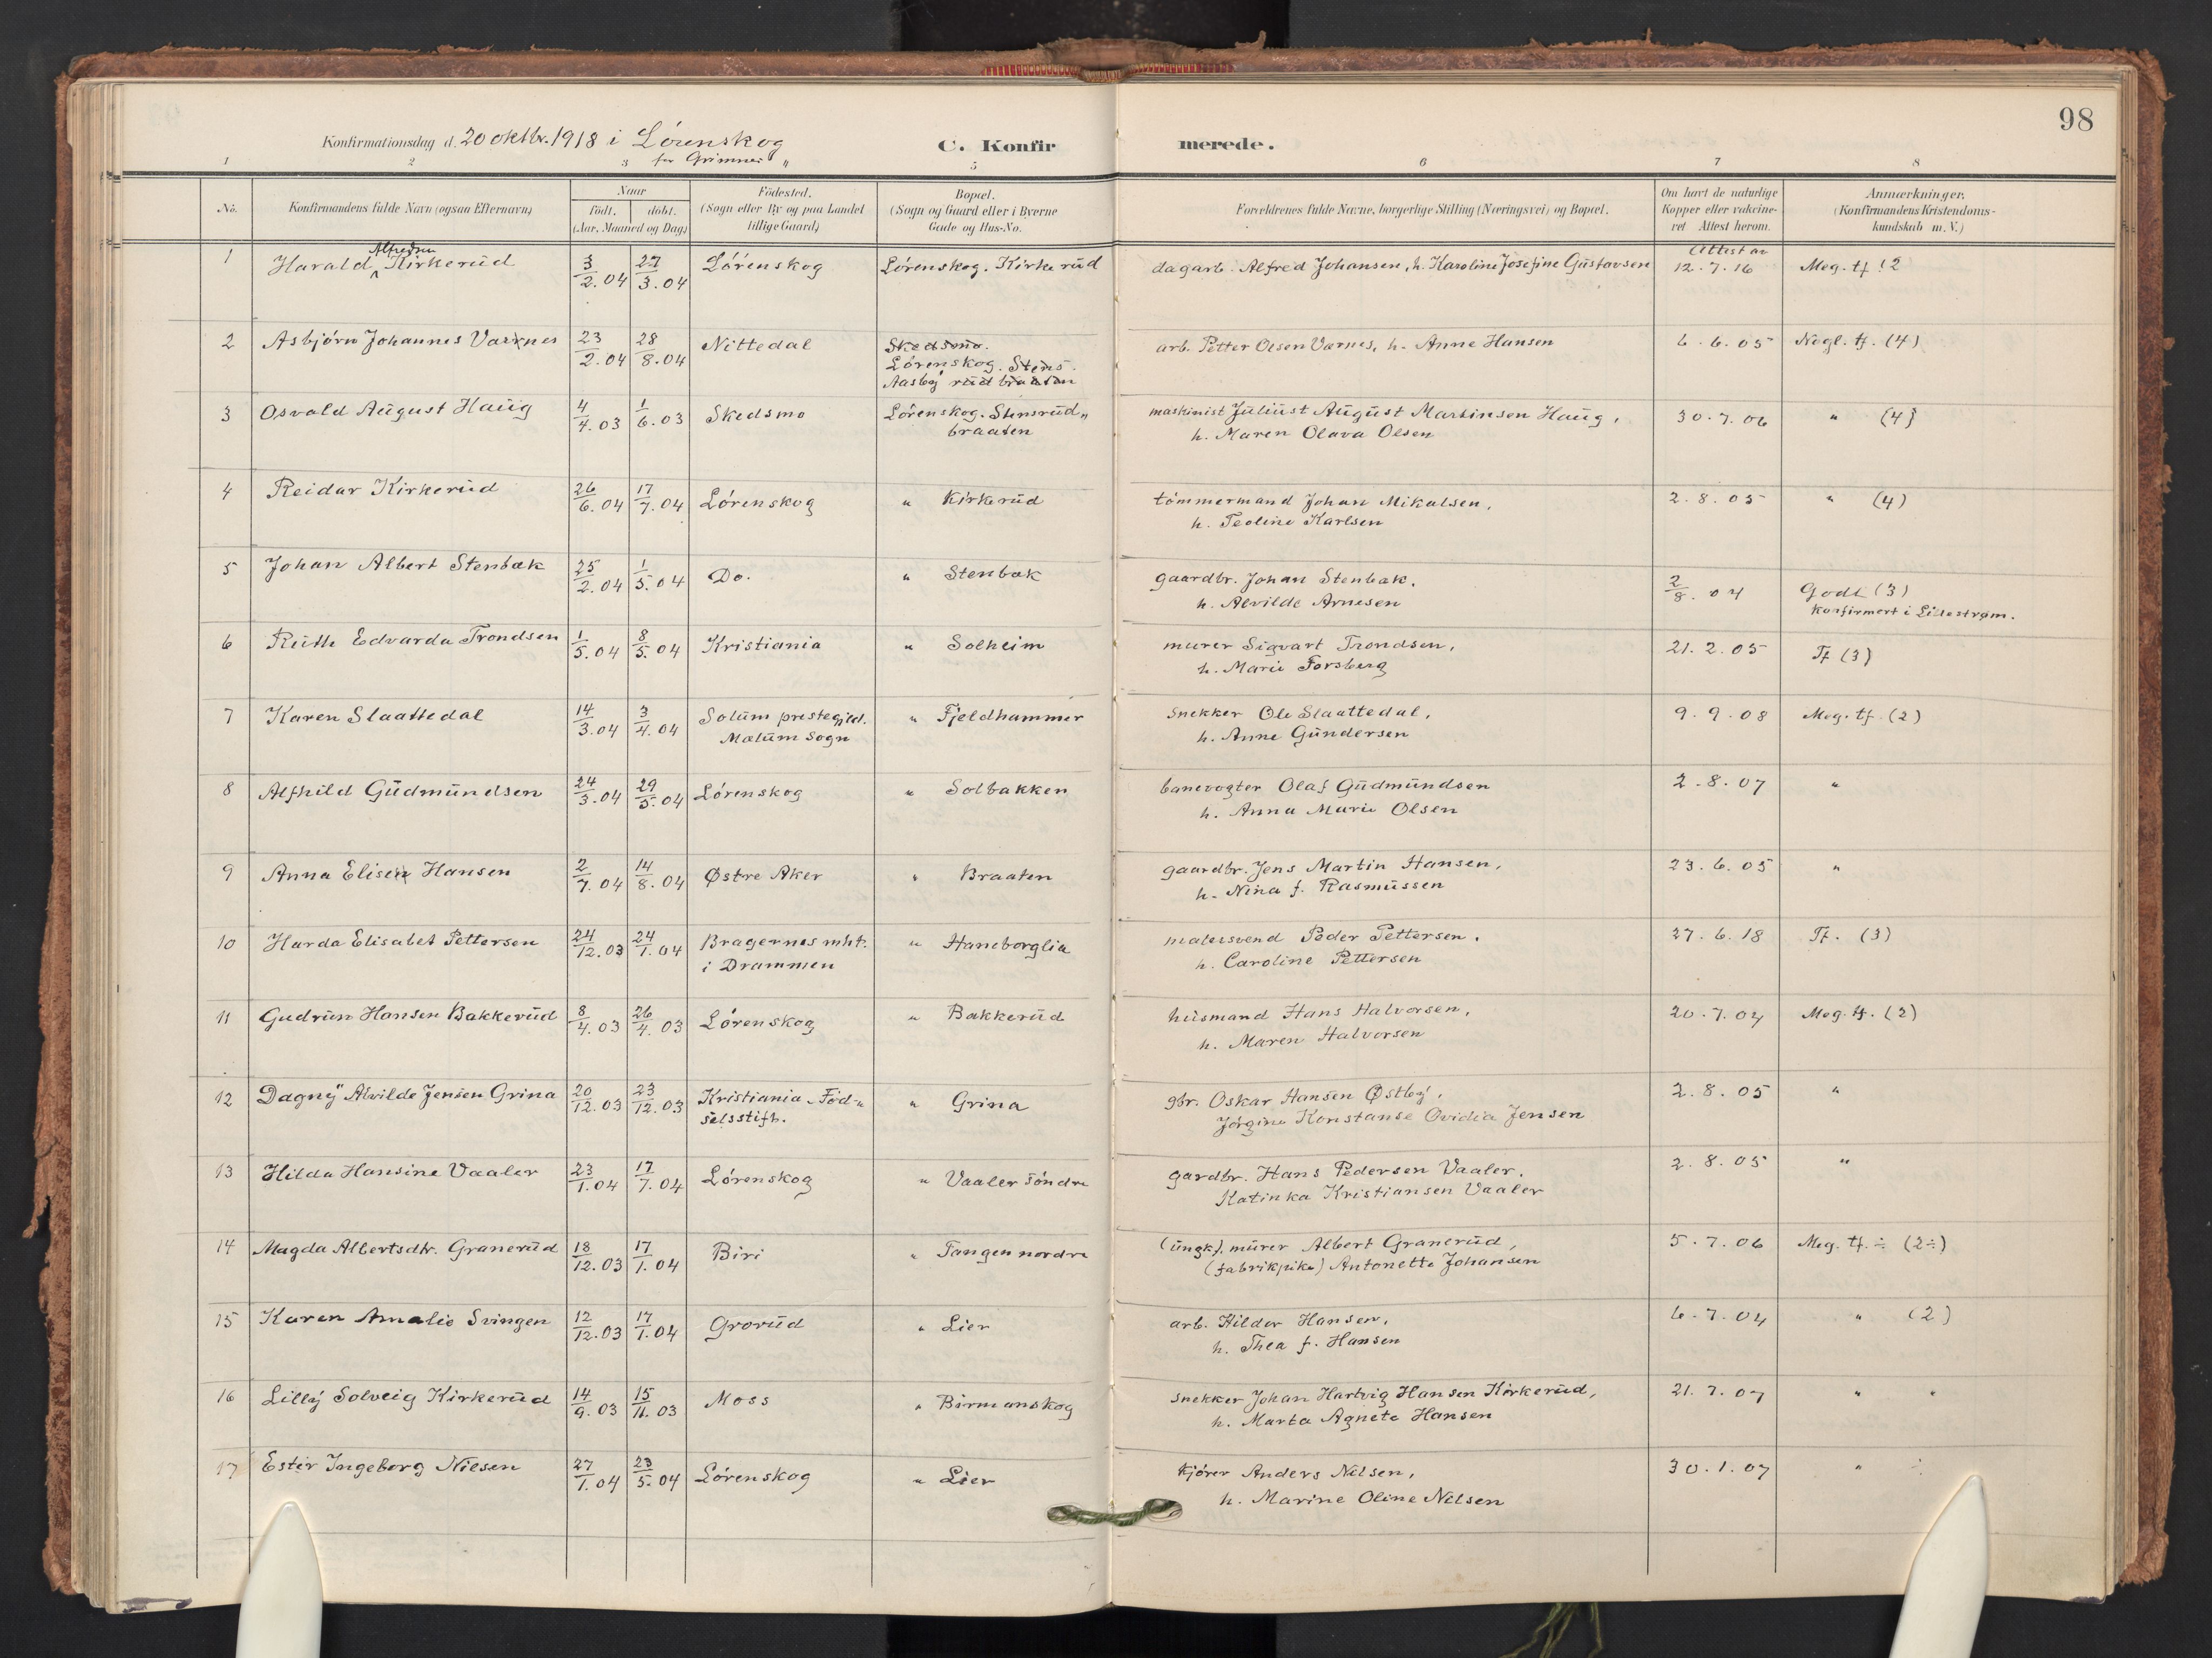 98
Konfirmationsdag d. 20 oktbr. 1918 i Lörenskog C. Konfirmerede.
1 2 3 5 6 7 8
No. Konfirmandens fulde Navn (ogsaa Efternavn) Naar född. döbt. (Aar, Maaned og Dag) Födested. (Sogn eller By og paa Landet tillige Gaard) Bopæl. (Sogn og Gaard eller i Byerne Gade og Hus-No. Forældrenes fulde Navne, borgerlige Stilling (Næringsvei) og Bopæl. Om havt de naturlige Kopper eller vakcineret Attest herom. Anmærkninger. (Konfirmandens Kristendomskundskab m. V.)
1 Harald Alfredsen Kirkerud 3/2.04 27/3.04 Lörenskog Lörenskog. Kirkerud dagarb. Alfred Johansen, h. Karoline Josefine Gustavsen Attest av 12.7.16 Meg. tf. 2
2 Asbjörn Johannes Varnes 23/2.04 28/8.04 Nittedal Skedsmo. Lörenskog. Stens- Aasby rud braaten arb. Petter Olsen Varnes, h. Anne Hansen 6.6.05 Nogl. tf. (4)
3 Osvald August Haug 4/4.03 1/6.03 Skedsmo Lörenskog. Stensrud„
braaten maskinist Juliust August Martinsen Haug,
h. Maren Olava Olsen 30.7.06 " (4)
4 Reidar Kirkerud 26/6.04 17/7.04 Lörenskog " Kirkerud tömmermand Johan Mikalsen,
h. Teoline Karlsen 2.8.05 " (4)
5 Johan Albert Stenbæk 25/2.04 1/5.04 Do. " Stenbæk gaardbr. Johan Stenbæk.
h. Alvilde Arnesen 2/8.04 Godt (3)
konfirmert i Lillestrøm.
6 Ruth Edvarda Trondsen 1/5.04 8/5.04 Kristiania " Solheim murer Sigvart Trondsen,
h. Marie Forsberg 21.2.05 Tf (3)
7 Karen Slaattedal 14/3.04 3/4.04 Solum prestegjeld.
Mælum Sogn " Fjeldhammer Snekker Ole Slaattedal,
h. Anne Gundersen 9.9.08 Meg. tf. (2)
8 Alfhild Gudmundsen 24/3.04 29/5.04 Lörenskog " Solbakken banevogter Olaf Gudmundsen
h. Anna Marie Olsen 2.8.07 "
9 Anna Elise Hansen 2/7.04 14/8.04 Østre Aker " Braaten gaardbr. Jens Martin Hansen,
h. Nina f. Rasmussen 23.6.05 "
10 Harda Elisabet Pettersen 24/12.03 24/1.04 Bragernes mht.
i Drammen " Haneborglia malersvend Peder Pettersen.
h. Caroline Pettersen 27.6.18 Tf. (3)
11 Gudrun Hansen Bakkerud 8/4.03 26/4.03 Lörenskog " Bakkerud husmand Hans Halvorsen,
h. Maren Halvorsen 20.7.04 Meg. tf. (2)
12 Dagny Alvilde Jensen Grina 20/12.03 23/12.03 Kristiania. Föd„
selsstift. " Grina gbr. Oskar Hansen Østby,
Jörgine Konstanse Ovidia Jensen 2.8.05 "
13 Hilda Hansine Vaaler 23/1.04 17/7.04 Lörenskog " Vaaler söndre gardbr. Hans Pedersen Vaaler.
Katinka Kristiansen Vaaler 2.8.05 "
14 Magda Albertsdtr. Granerud 18/12.03 17/1.04 Biri " Tangen nordre (ungk). murer Albert Granerud,
(fabrikpike) Antonette Johansen 5.7.06 Meg. tf. ÷ (2÷)
15 Karen Amalie Svingen 12/12.03 17/1.04 Grorud " Lier arb. Hildor Hansen,
h. Thea f. Hansen 6.7.04 " (2)
16 Lilly Solveig Kirkerud 14/9.03 15/11.03 Moss " Birmanskog snekker Johan Hartvig Hansen Kirkerud,
h. Marta Agnete Hansen 21.7.07 " "
17 Ester Ingeborg Nilsen 27/1.04 23/5.04 Lörenskog " Lier kjörer Anders Nilsen,
h. Marine Oline Nilsen 30.1.07 "